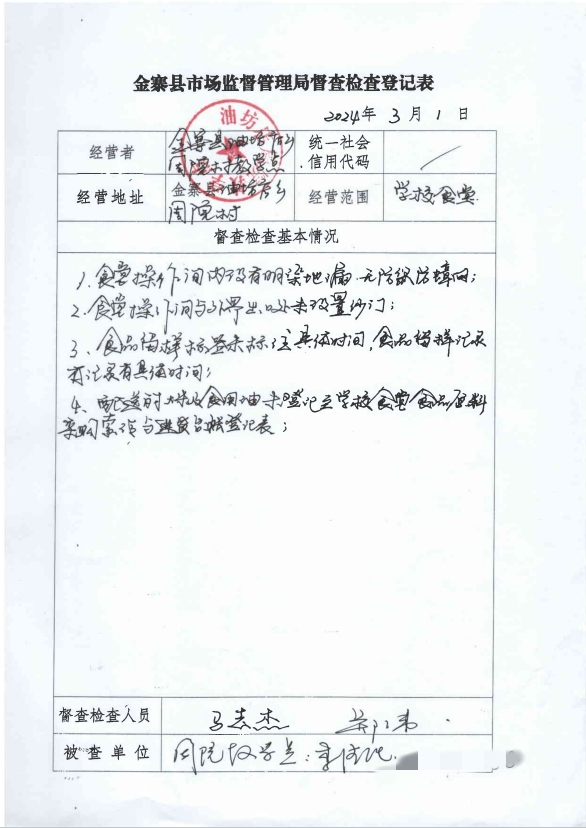 金寨县市场监督管理局督查检查登记表
2024年 3月 1日
经营者
金寨县油坊店乡
周院村教学点
统一社会
信用代码
经营地址
金寨县油坊店乡
周院村
经营范围
学校食堂
督查检查基本情况
1、食堂操作间内没有明染地漏 无防
2、食堂操作间与外界出口处未设置纱门;
3、食品留样标签未标注具体时间,食品留样记录
有记录有具体时间;
4、配送的大米 食用油未登记至学校食堂食品原料
采购索证与进货台账登记表;
督查检查人员
马志杰
被查单位
周院教学点:
油坊